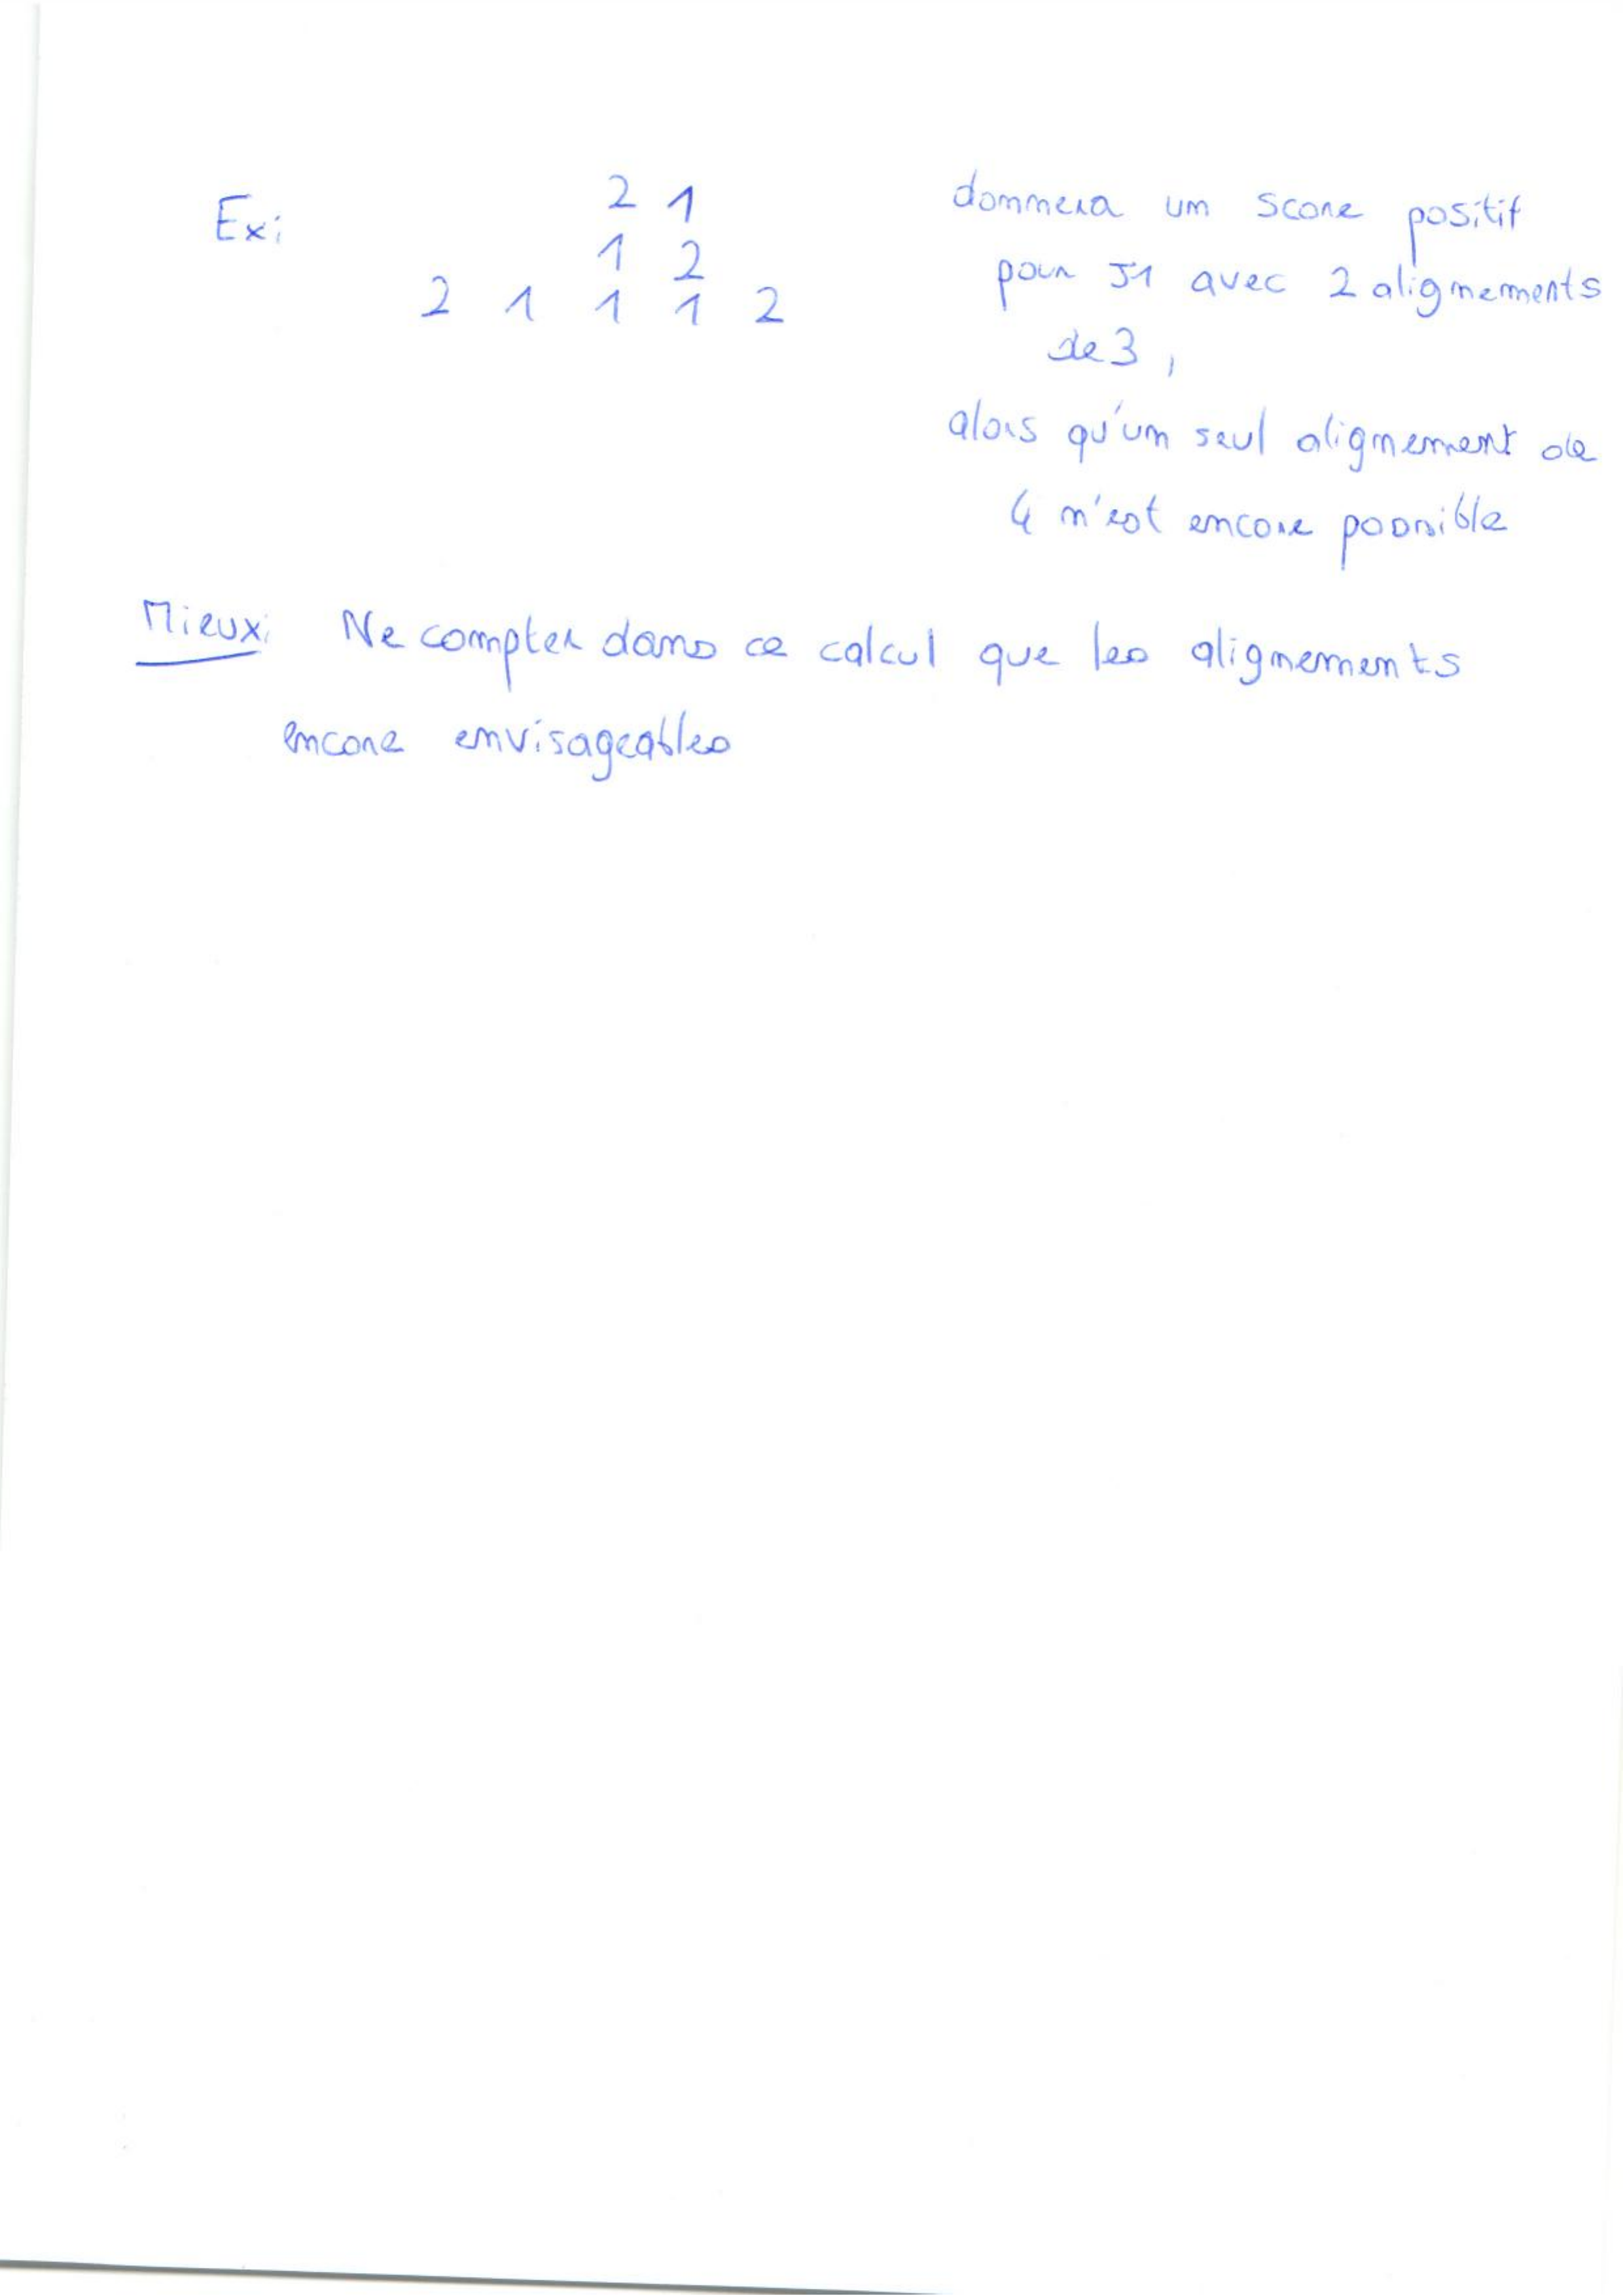 Ex: 2 1 donnera un score positif
1 2 pour J1 avec 2 alignements
2 1 1 1 2 de 3,
alors qu'un seul alignement de
4 n'est encore possible
Mieux: Ne compter dans ce calcul que les alignements
encore envisageables